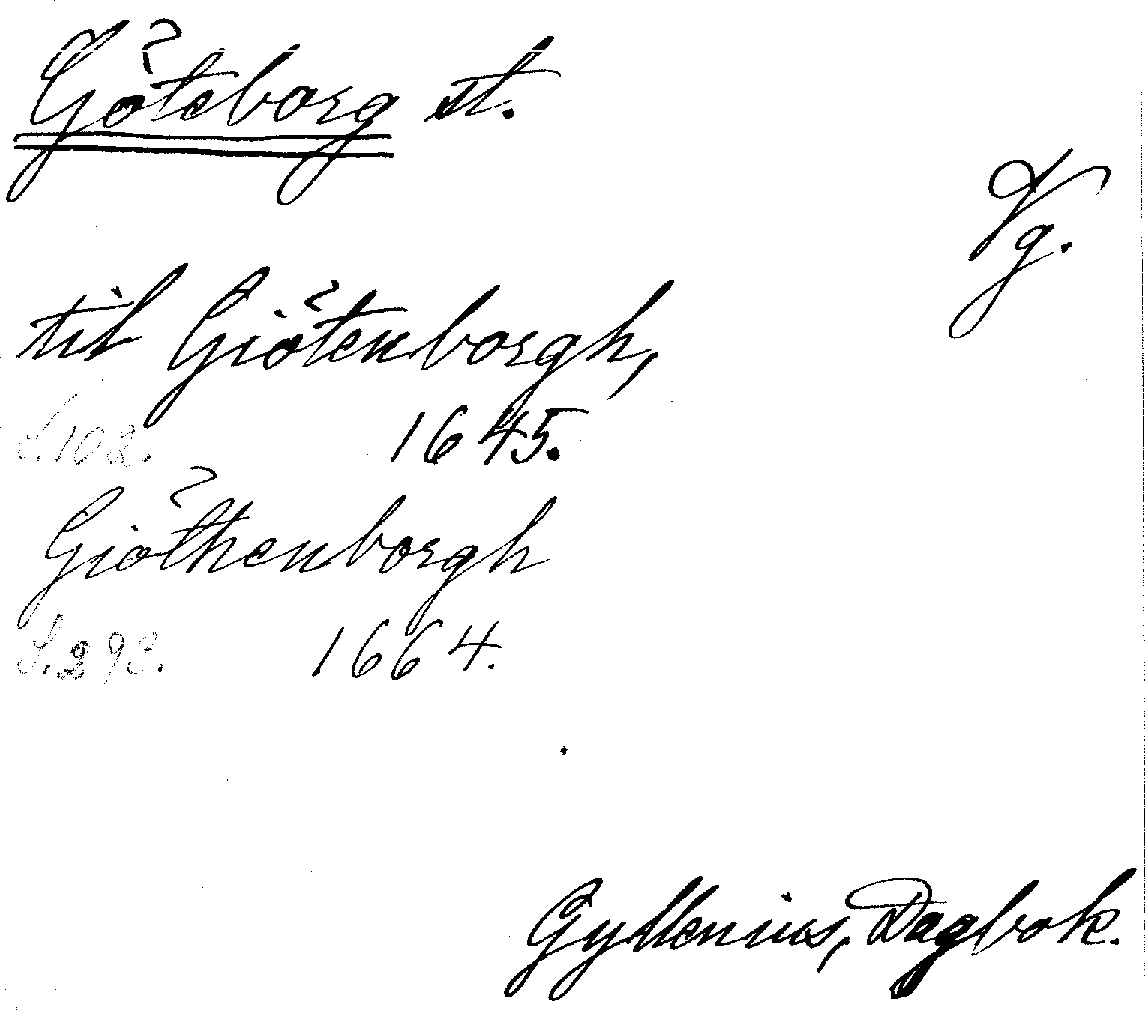 Göteborg st.
Vg.
til Giötenborgh,
S. 102. 1645.
Giöthenborgh
S. 293. 1664.
Gyllenius, Dagbok.